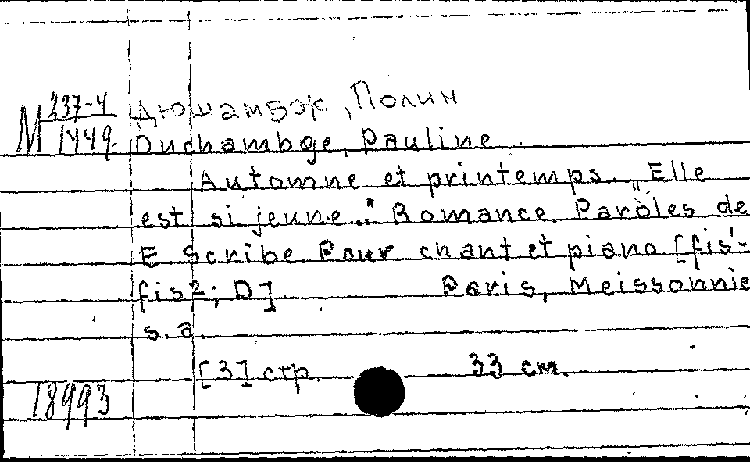 М 237-4 Дюшамбок, Полин
1449 Duchambge, Pauline.
Automne et printemps. „Elle
est si jeune..." Romance. Paroles de
E Scribe Pour chant et piano [fis'-
fis2; D] Paris, Meissonnie
s. a.
[3] стр. 33 см.
18993